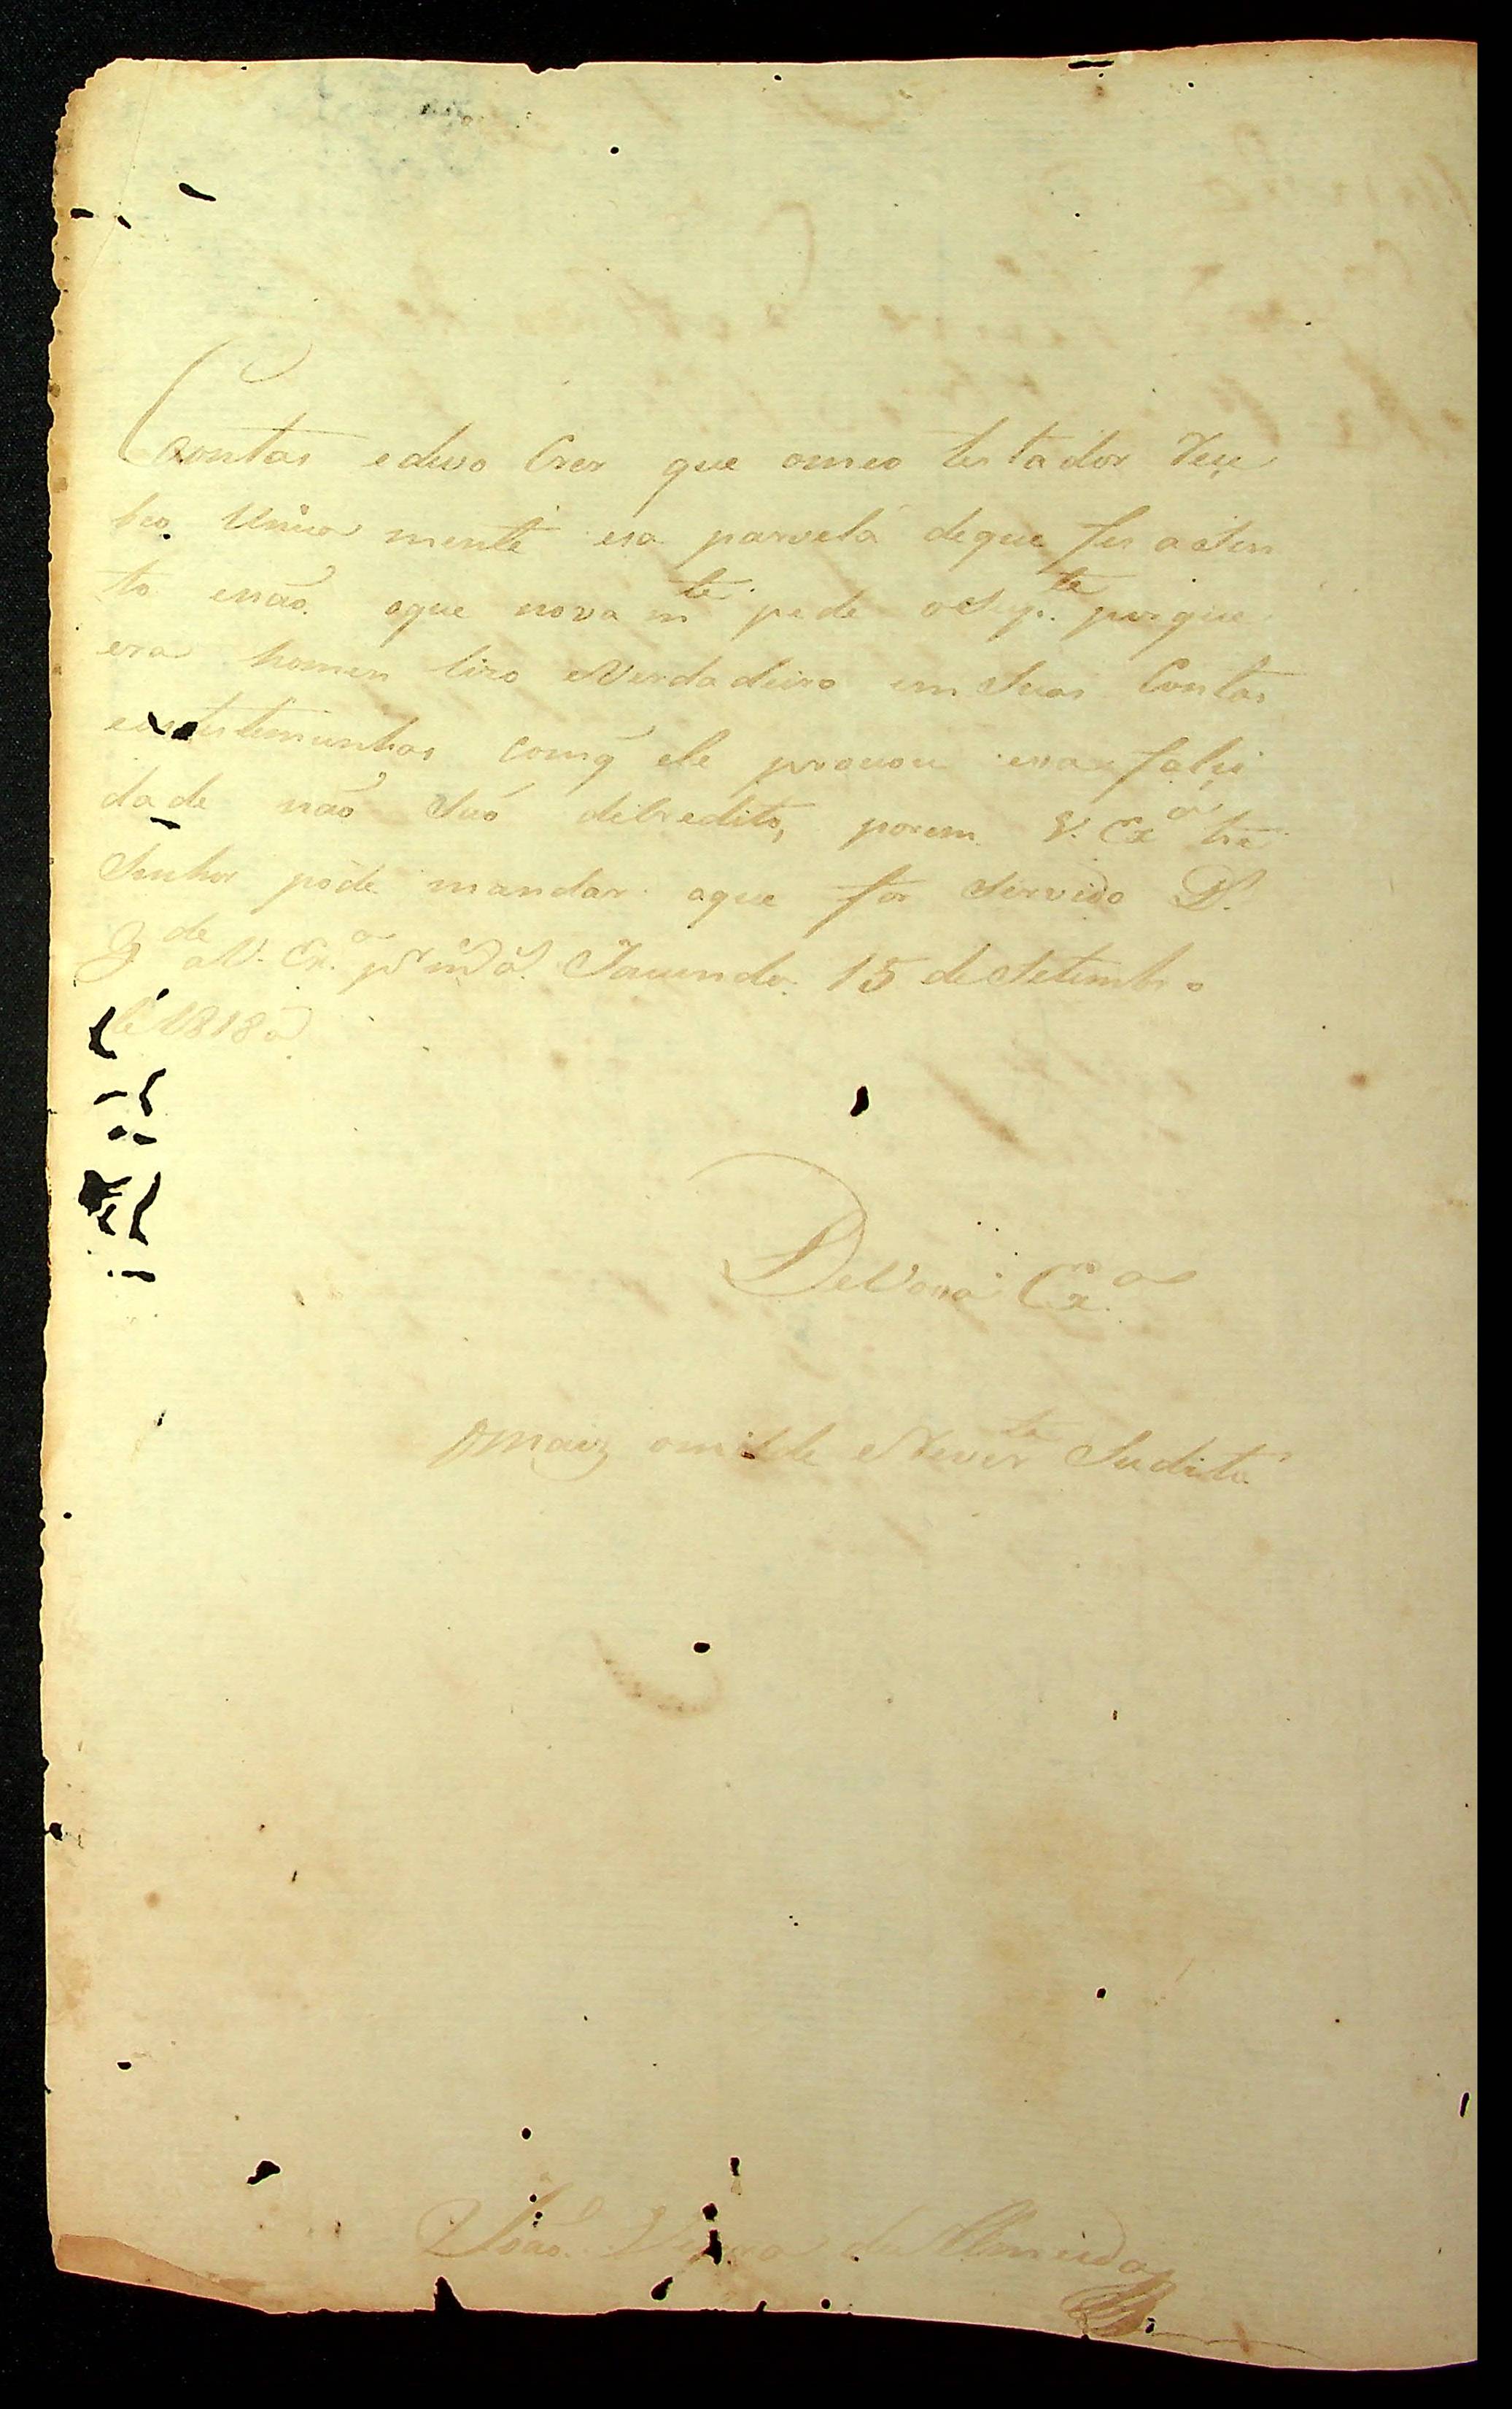 Contas e devo Crer que omeo testador Reçe
beo Unica mente esa parsela deque fes asen
to enão oque nova m.te pede oSup.te porque
era homem lizo eVerdadeiro em Suas Contas
eas testemunhas comq̃ ele provou essa falçi
dade não São deCredito, porem V. Ex.a
Senhor pode mandar oque for Servido D.s
G.de aV. Ex.a 15 de Setembro
de 1818
DeVossa Ex.a
Omais omilde eRever.te Sudito
João Vieira de Almeida